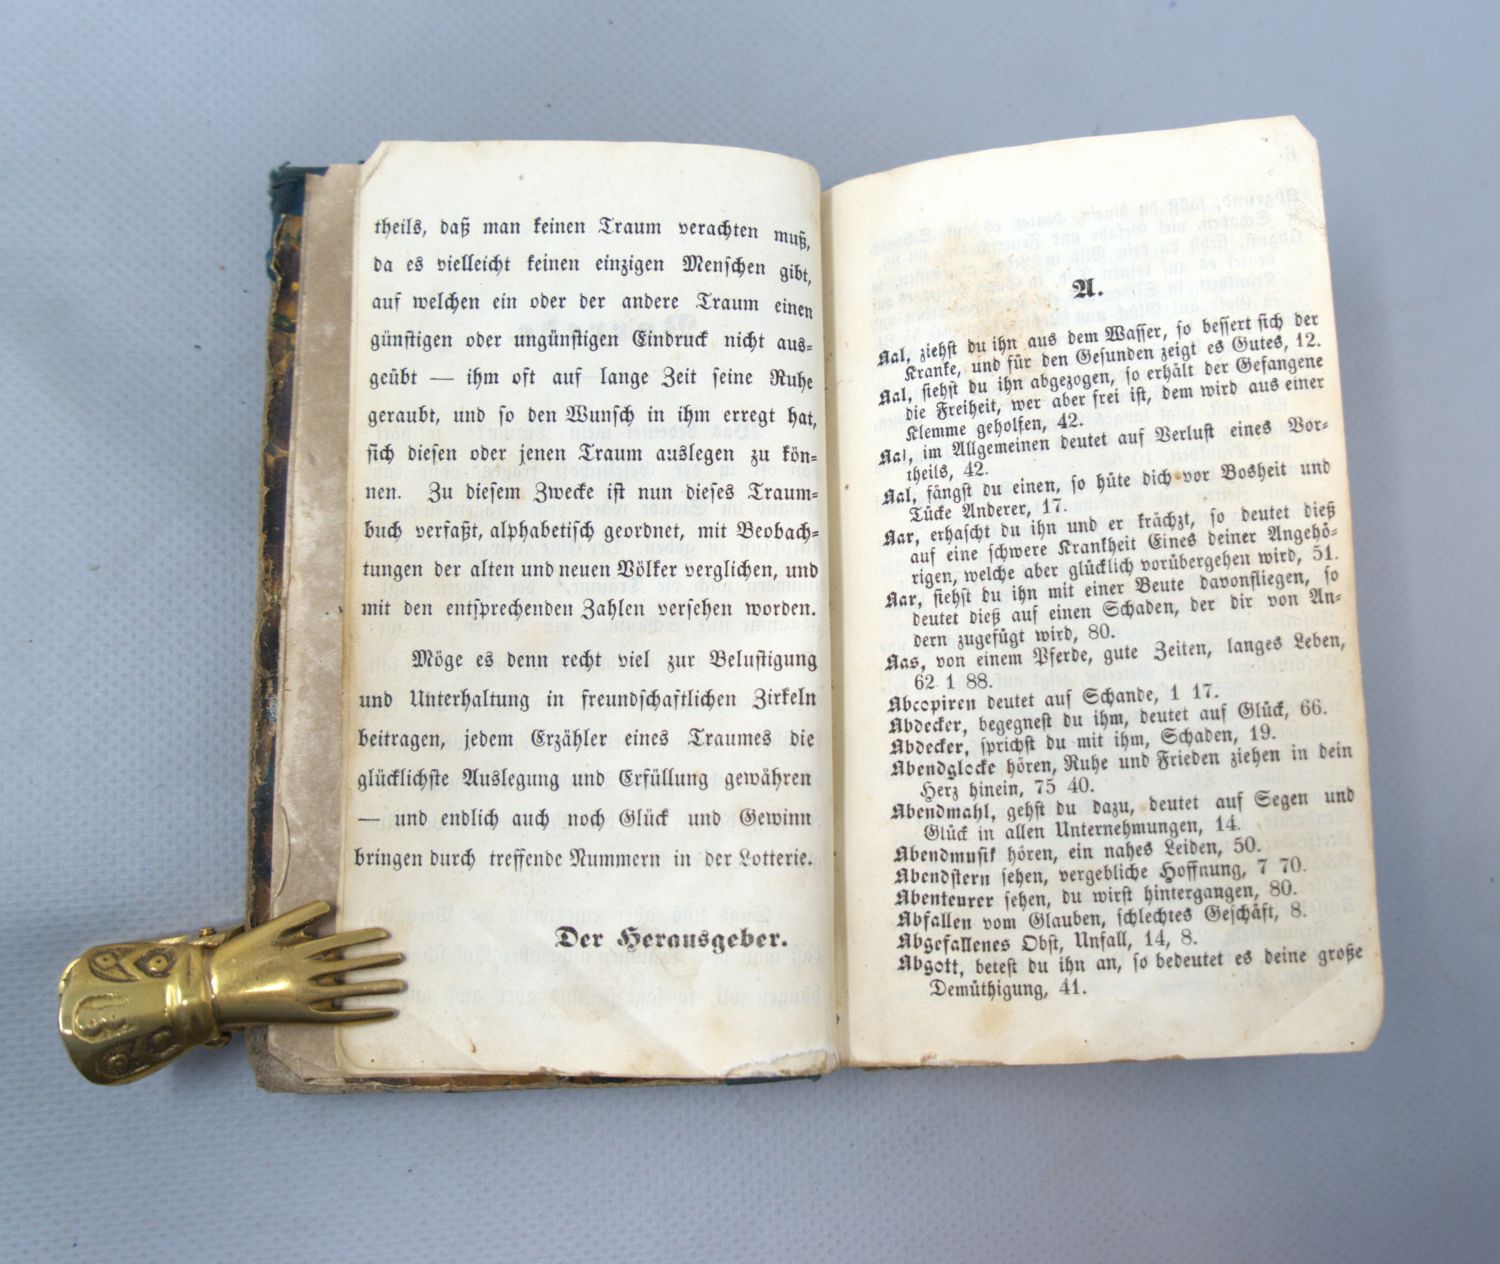 theils, daß man keinen Traum verachten muß,
da es vielleicht keinen einzigen Menschen gibt,
auf welchen ein oder der andere Traum einen
günstigen oder ungünstigen Eindruck nicht aus=
geübt — ihm oft auf lange Zeit seine Ruhe
geraubt, und so den Wunsch in ihm erregt hat,
sich diesen oder jenen Traum auslegen zu kön=
nen. Zu diesem Zwecke ist nun dieses Traum=
buch verfaßt, alphabetisch geordnet, mit Beobach=
tungen der alten und neuen Völker verglichen, und
mit den entsprechenden Zahlen versehen worden.
Möge es denn recht viel zur Belustigung
und Unterhaltung in freundschaftlichen Zirkeln
beitragen, jedem Erzähler eines Traumes die
glücklichste Auslegung und Erfüllung gewähren
— und endlich auch noch Glück und Gewinn
bringen durch treffende Nummern in der Lotterie.
Der Herausgeber.
A.
Aal, ziehst du ihn aus dem Wasser, so bessert sich der
Kranke, und für den Gesunden zeigt es Gutes, 12.
Aal, siehst du ihn abgezogen, so erhält der Gefangene
die Freiheit, wer aber frei ist, dem wird aus einer
Klemme geholfen, 42.
Aal, im Allgemeinen deutet auf Verlust eines Vor=
theils, 42.
Aal, fängst du einen, so hüte dich vor Bosheit und
Tücke Anderer, 17.
Aar, erhascht du ihn und er krächzt, so deutet dieß
auf eine schwere Krankheit Eines deiner Angehö=
rigen, welche aber glücklich vorübergehen wird, 51.
Aar, siehst du ihn mit einer Beute davonfliegen, so
deutet dieß auf einen Schaden, der dir von An=
dern zugefügt wird, 80.
Aas, von einem Pferde, gute Zeiten, langes Leben,
62 1 88.
Abcopiren deutet auf Schande, 1 17.
Abdecker, begegnest du ihm, deutet auf Glück, 66.
Abdecker, sprichst du mit ihm, Schaden, 19.
Abendglocke hören, Ruhe und Frieden ziehen in dein
Herz hinein, 75 40.
Abendmahl, gehst du dazu, deutet auf Segen und
Glück in allen Unternehmungen, 14.
Abendmusik hören, ein nahes Leiden, 50.
Abendstern sehen, vergebliche Hoffnung, 7 70.
Abenteurer sehen, du wirst hintergangen, 80.
Abfallen vom Glauben, schlechtes Geschäft, 8.
Abgefallenes Obst, Unfall, 14, 8.
Abgott, betest du ihn an, so bedeutet es deine große
Demüthigung, 41.